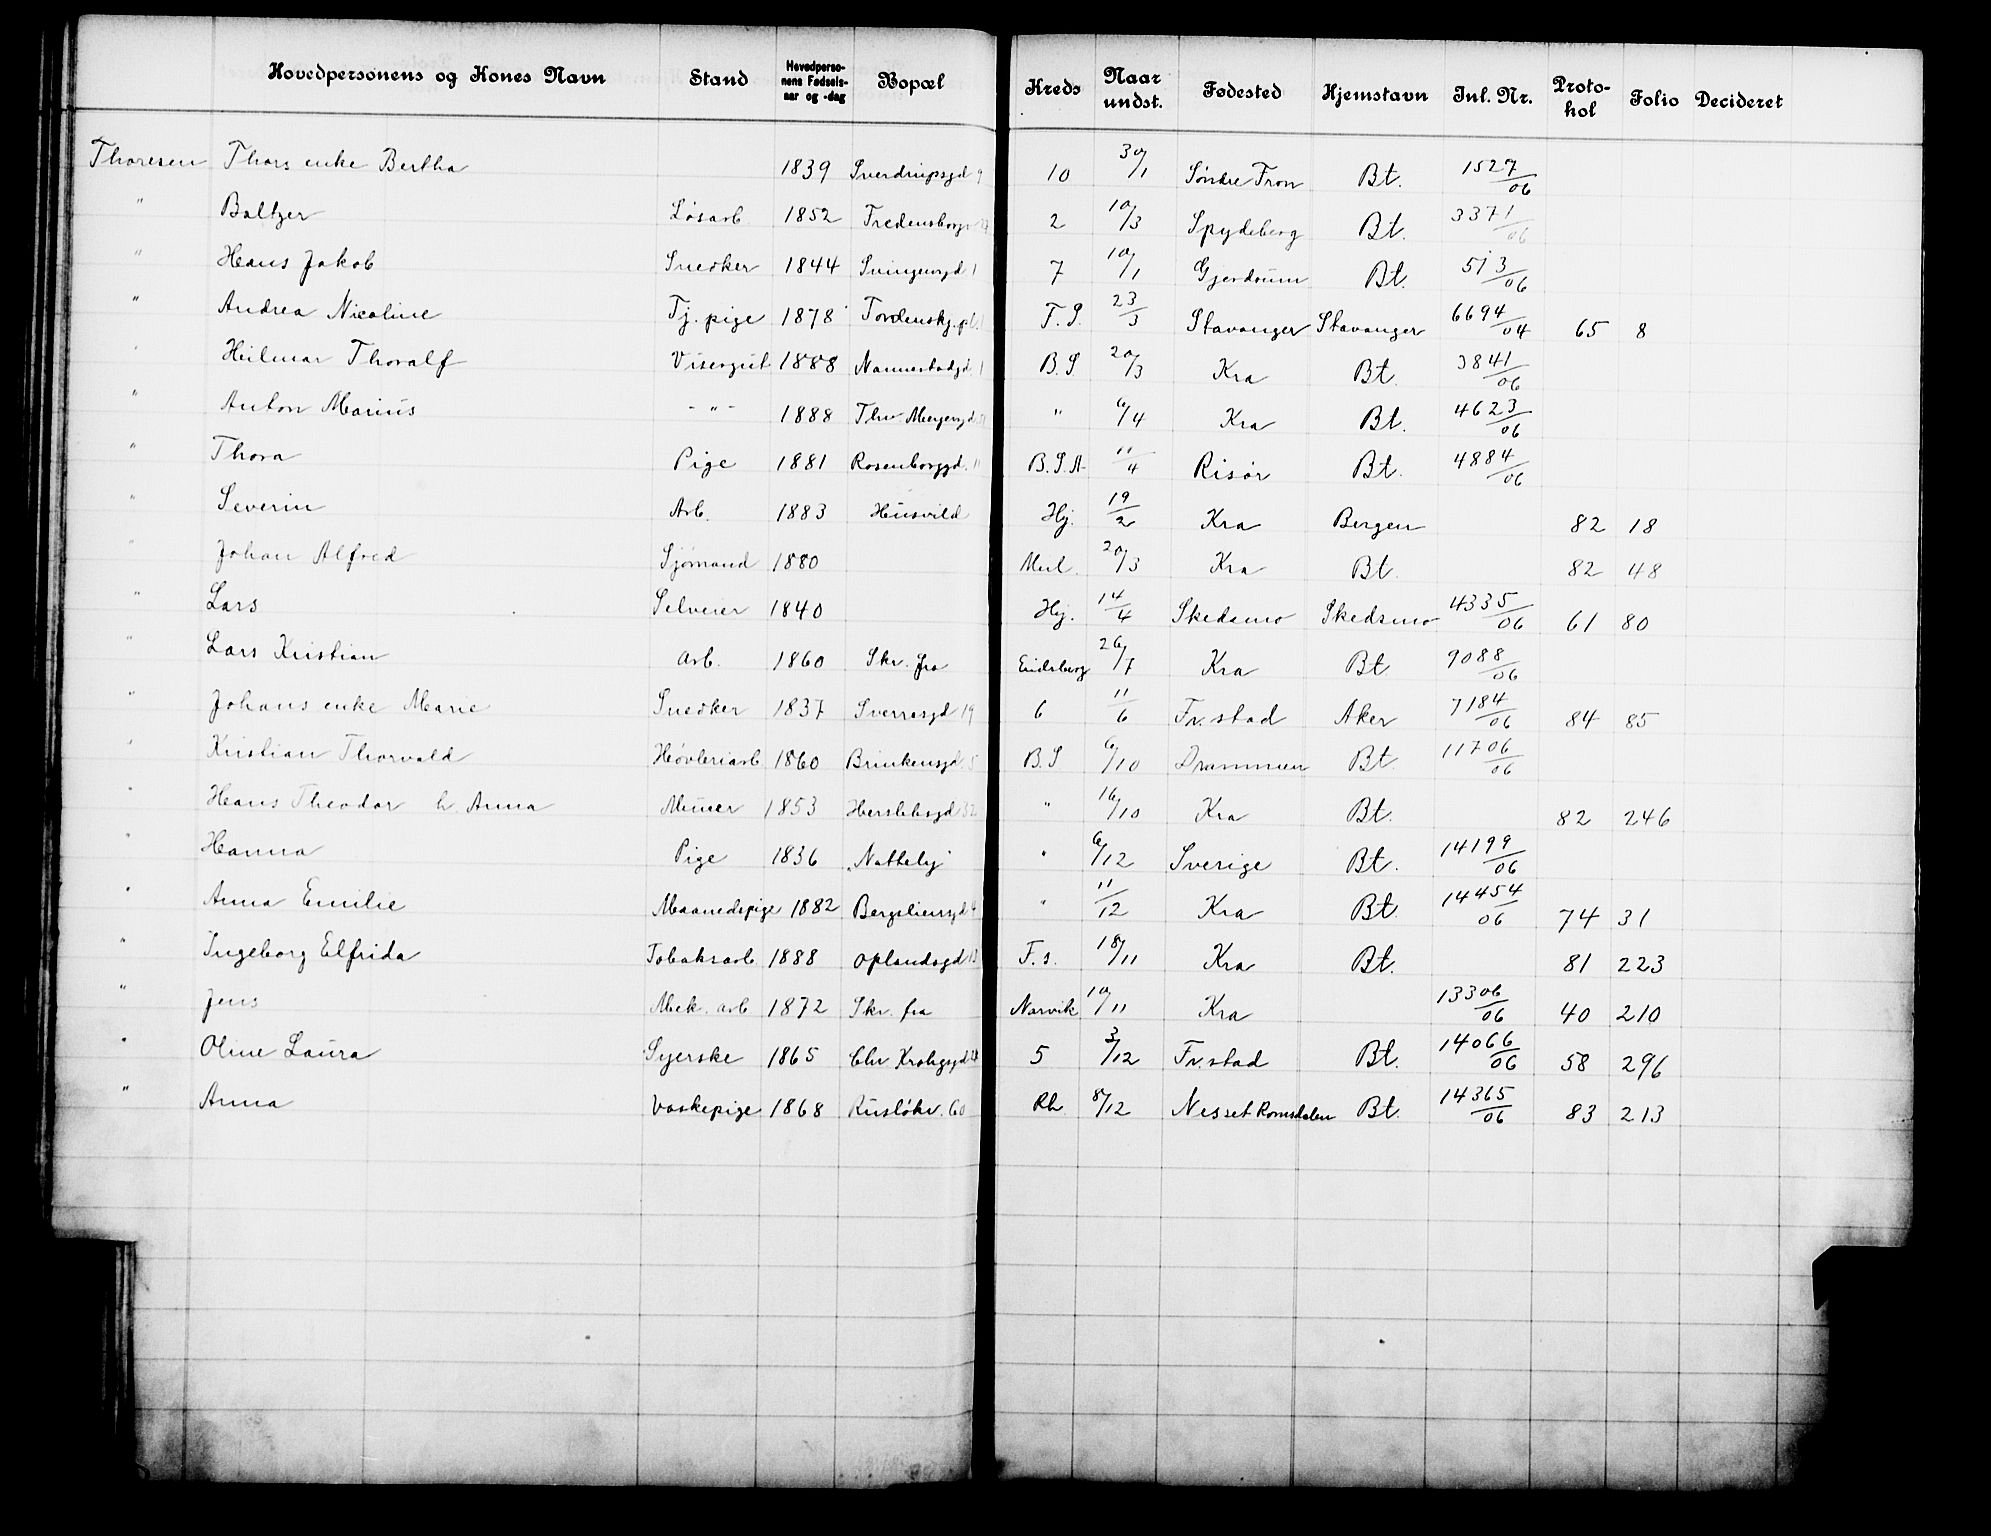 Hovedpersonens og Kones Navn Stand Hovedpersonens Fødselsaar og -dag Bopæl Kreds Naar undst. Fødested Hjemstavn Jnl. Nr. Protokol Folio Decideret
Thoresen Thors enke Bertha 1839 Sverdrupsgd 9 10 30/1 Søndre Fron Bt. 1527/06
" Baltzer Løsarb 1852 Fredensborgv 2 10/3 Spydeberg Bt. 3371/06
" Hans Jakob Snedker 1844 Svingensgd 1 7 10/1 Gjerdrum Bt. 513/06
" Andrea Nicoline Tj. pige 1878 Tordenskj.pl. 1 F.S. 23/3 Stavanger Stavanger 6694/04 65 8
" Hilmar Thoralf Visergut 1888 Nannestadgd 1 B.S. 20/3 Kra Bt. 3841/06
" Anton Marius - " - 1888 Thv. Meyersgd " 6/4 Kra Bt. 4623/06
" Thora Pige 1881 Rosenborggd. 11 B.S.A. 11/4 Risør Bt. 4884/06
" Severin Arb. 1883 Husvild Hj. 19/2 Kra Bergen 82 18
" Johan Alfred Sjømand 1880 20/3 Kra Bt. 82 48
" Lars Selveier 1840 Hj. 14/4 Skedsmo Skedsmo 4335/06 61 80
" Lars Kristian Arb. 1860 Skr. fra Eidsberg 26/7 Kra Bt 9088/06
" Johans enke Marie Snedker 1837 Sverresgd 19 6 11/6 Fr.stad Aker 7184/06 84 85
" Kristian Thorvald Høvleriarb 1860 Brinkensgd. 5 B.S 6/10 Drammen Bt. 11706/06
" Hans Theodor h. Anna Murer 1853 Herslebsgd 32 " 16/10 Kra Bt. 82 246
" Hanna Pige 1836 "Nattely" " 6/12 Sverige Bt. 14199/06
" Anna Emilie Maanedspige 1882 Bergsliensgd 4 " 11/12 Kra Bt. 14454/06 74 31
" Ingeborg Elfrida Tobaksarb 1888 Oplandsgd 13 F.s. 18/11 Kra Bt. 81 223
" Jens Mek. arb 1872 Skr. fra Narvik 10/11 Kra 13306/06 40 210
" Oline Laura Syerske 1865 Chr Krohgsgd 5 3/12 Fr.stad Bt. 14066/06 58 296
" Anna Vaskepige 1868 Rusløkv. 60 Rh. 8/12 Nesset Romsdalen Bt. 14365/06 83 213